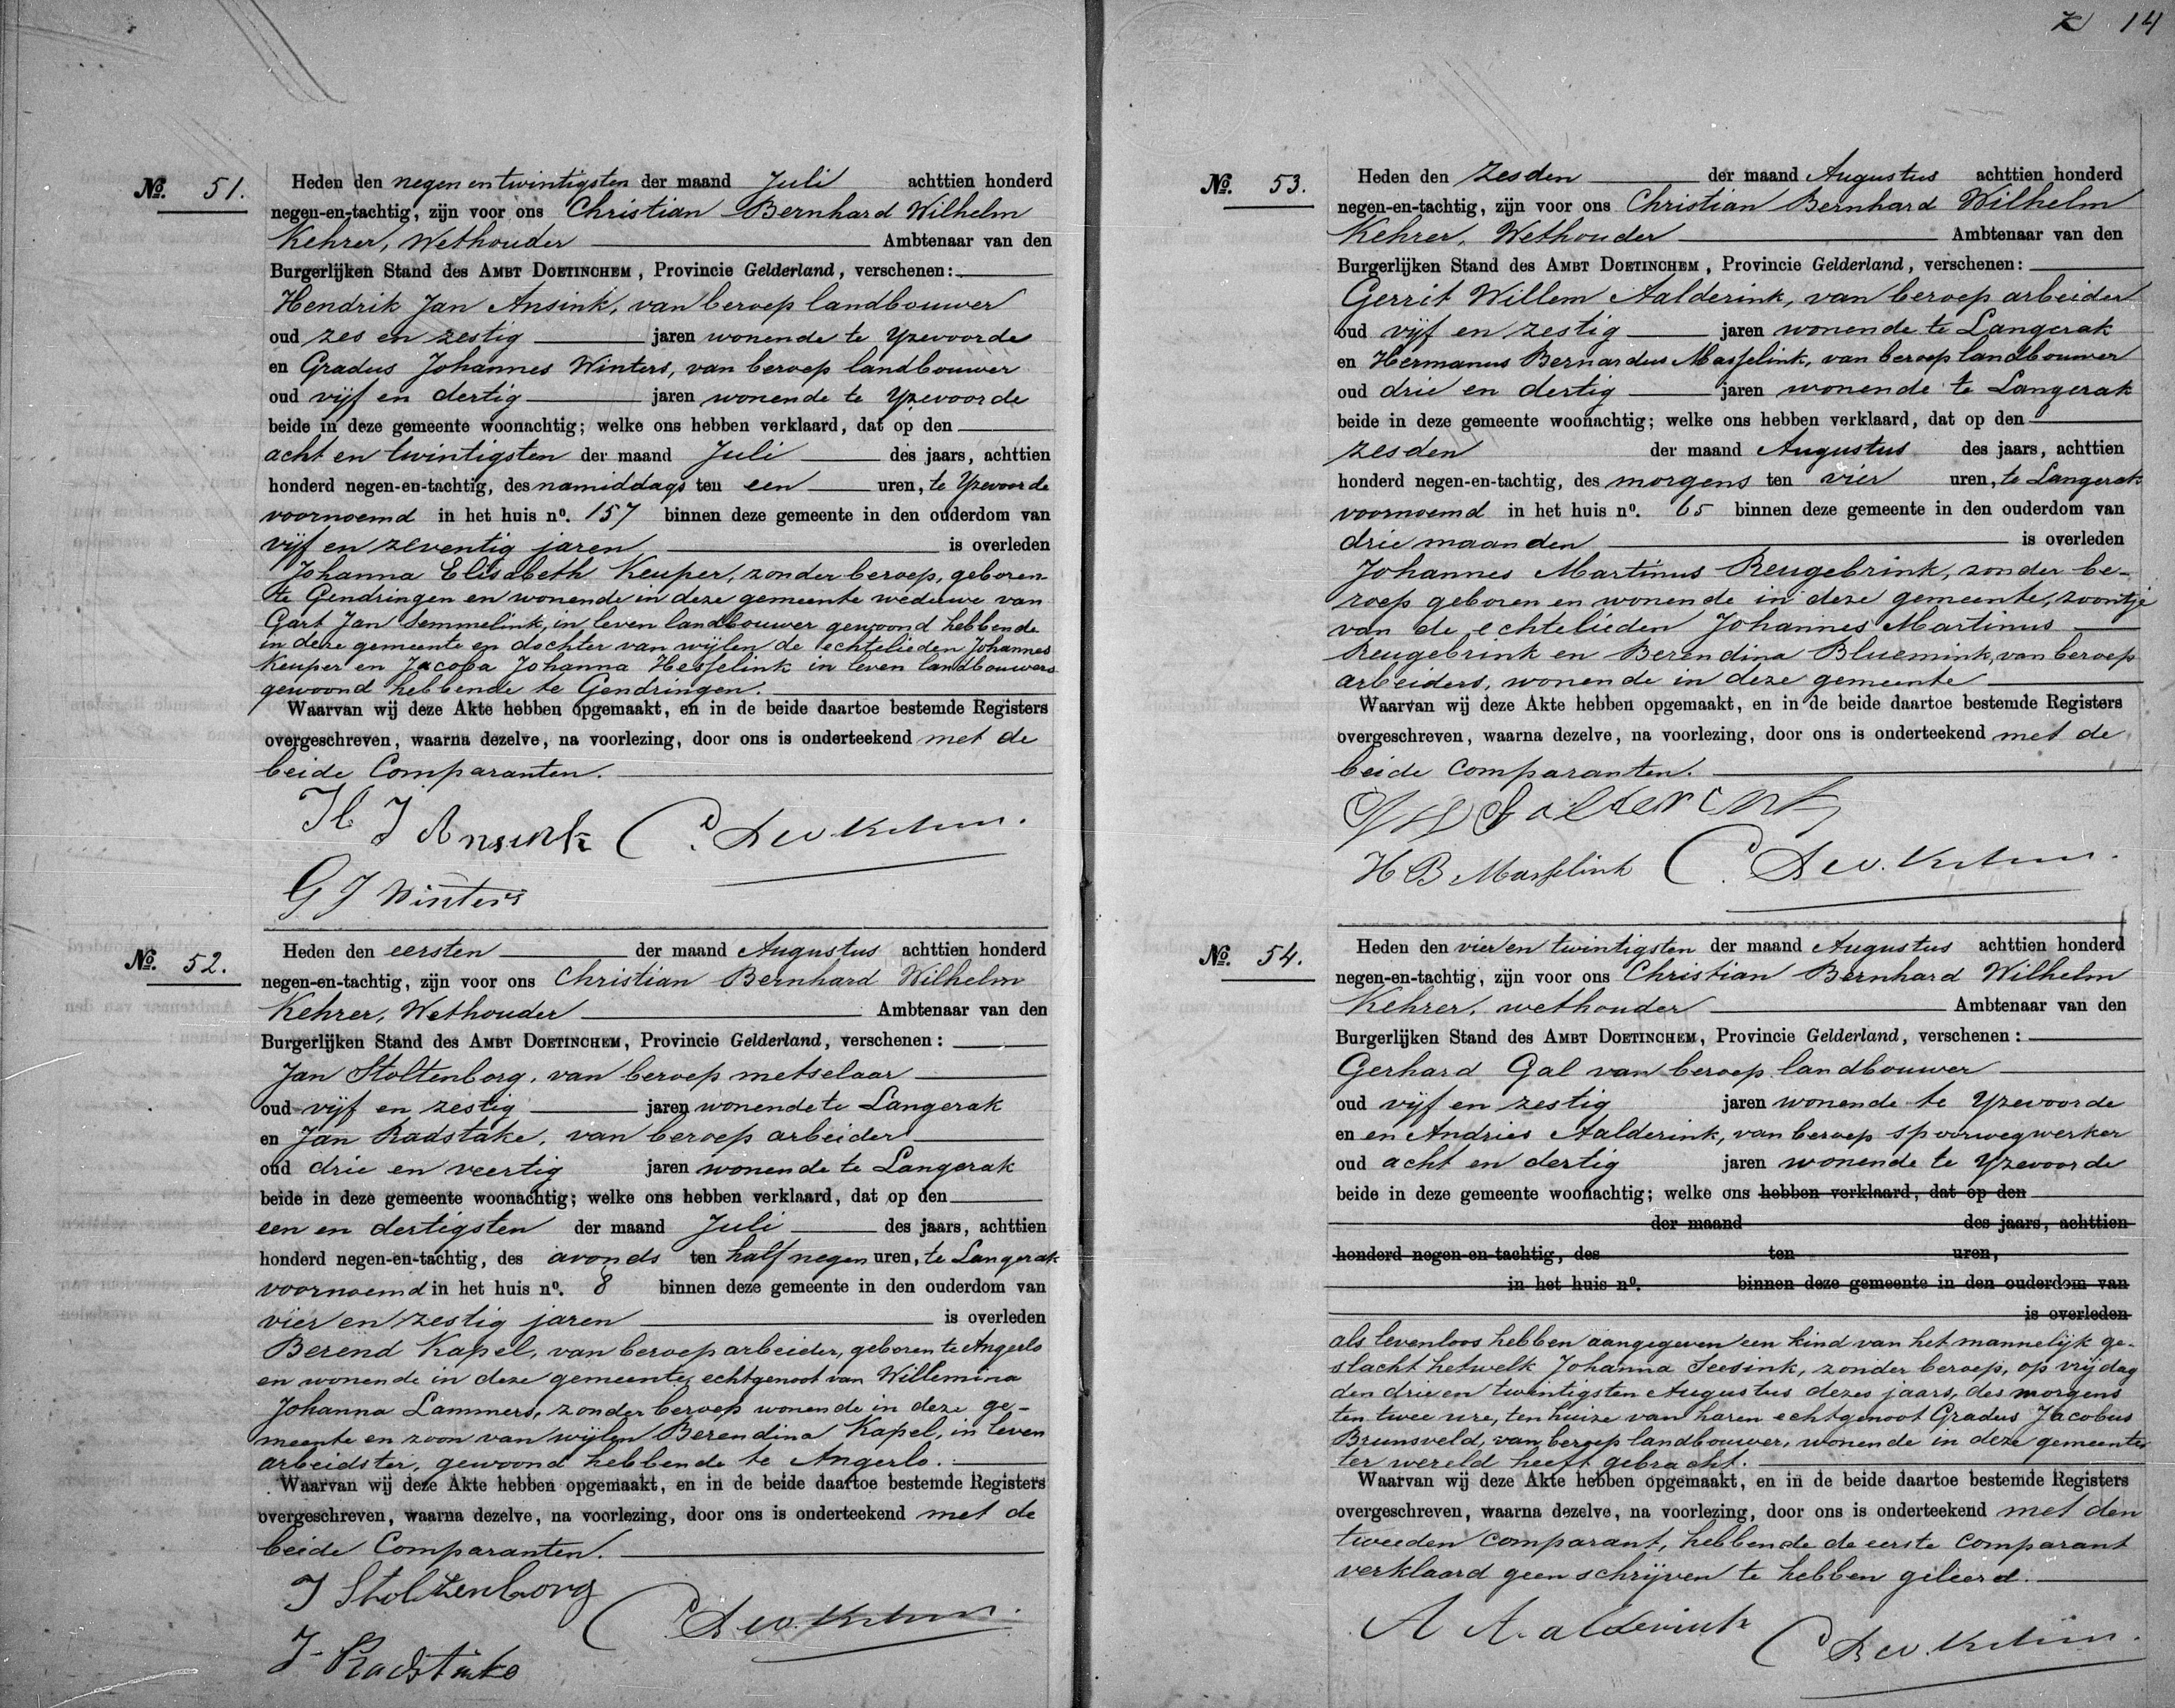 14
No. 51.
Heden den negen en twintigsten der maand Juli achttien honderd
negen-en-tachtig, zijn voor ons Christian Bernhard Wilhelm
Kehrer, Wethouder Ambtenaar van den
Burgerlijken Stand des AMBT DOETINCHEM, Provincie Gelderland, verschenen:
Hendrik Jan Ansink, van beroep landbouwer
oud zes en zestig jaren wonende te Yzevoorde
en Gradus Johannes Winters, van beroep landbouwer
oud vijf en dertig jaren wonende te Yzevoorde
beide in deze gemeente woonachtig; welke ons hebben verklaard, dat op den
acht en twintigsten der maand Juli des jaars, achttien
honderd negen-en-tachtig, des namiddags ten een uren, te Yzevoorde
voornoemd in het huis no. 157 binnen deze gemeente in den ouderdom van
vijf en zeventig jaren is overleden
Johanna Elisabeth Keuper, zonder beroep, geboren
te Gendringen en wonende in deze gemeente weduwe van
Gart Jan Semmelink, in leven landbouwer gewoond hebbende
in deze gemeente en dochter van wijlen de echtelieden Johannes
Keuper en Jacoba Johanna Hesselink in leven landbouwers
gewoond hebbende te Gendringen.
Waarvan wij deze Akte hebben opgemaakt, en in de beide daartoe bestemde Registers
overgeschreven, waarna dezelve, na voorlezing, door ons is onderteekend met de
beide Comparanten.
H J Ansink C. B W. Kehrer.
G J Winters
No. 52.
Heden den eersten der maand Augustus achttien honderd
negen-en-tachtig, zijn voor ons Christian Bernhard Wilhelm
Kehrer, Wethouder Ambtenaar van den
Burgerlijken Stand des AMBT DOETINCHEM, Provincie Gelderland, verschenen:
Jan Stoltenborg, van beroep metselaar
oud vijf en zestig jaren wonende te Langerak
en Jan Radstake, van beroep arbeider
oud drie en veertig jaren wonende te Langerak
beide in deze gemeente woonachtig; welke ons hebben verklaard, dat op den
een en dertigsten der maand Juli des jaars, achttien
honderd negen-en-tachtig, des avonds ten half negen uren, te Langerak
voornoemd in het huis no. 8 binnen deze gemeente in den ouderdom van
vier en zestig jaren is overleden
Berend Kapel, van beroep arbeider, geboren te Angerlo
en wonende in deze gemeente, echtgenoot van Willemina
Johanna Lammers, zonder beroep wonende in deze ge-
meente en zoon van wijlen Berendina Kapel, in leven
arbeidster, gewoond hebbende te Angerlo.
Waarvan wij deze Akte hebben opgemaakt, en in de beide daartoe bestemde Registers
overgeschreven, waarna dezelve, na voorlezing, door ons is onderteekend met de
beide Comparanten.
J Stoltenborg
C B W. Kehrer.
J Radstake
No. 53.
Heden den zesden der maand Augustus achttien honderd
negen-en-tachtig, zijn voor ons Christian Bernhard Wilhelm
Kehrer, Wethouder Ambtenaar van den
Burgerlijken Stand des AMBT DOETINCHEM, Provincie Gelderland, verschenen:
Gerrit Willem Aalderink, van beroep arbeider
oud vijf en zestig jaren wonende te Langerak
en Hermanus Bernardus Masselink, van beroep landbouwer
oud drie en dertig jaren wonende te Langerak
beide in deze gemeente woonachtig; welke ons hebben verklaard, dat op den
zesden der maand Augustus des jaars, achttien
honderd negen-en-tachtig, des morgens ten vier uren, te Langerak
voornoemd in het huis no. 65 binnen deze gemeente in den ouderdom van
drie maanden is overleden
Johannes Martinus Reugebrink, zonder be-
roep geboren en wonende in deze gemeente, zoontje
van de echtelieden Johannes Martinus
Reugebrink en Berendina Bluemink, van beroep
arbeiders, wonende in deze gemeente
Waarvan wij deze Akte hebben opgemaakt, en in de beide daartoe bestemde Registers
overgeschreven, waarna dezelve, na voorlezing, door ons is onderteekend met de
beide comparanten.
H B Masselink C. B W. Kehrer.
No. 54.
Heden den vier en twintigsten der maand Augustus achttien honderd
negen-en-tachtig, zijn voor ons Christian Bernhard Wilhelm
Kehrer, wethouder Ambtenaar van den
Burgerlijken Stand des AMBT DOETINCHEM, Provincie Gelderland, verschenen:
Gerhard Gal van beroep landbouwer
oud vijf en zestig jaren wonende te Yzevoorde
en en Andries Aalderink, van beroep spoorwegwerker
oud acht en dertig jaren wonende te Yzevoorde
beide in deze gemeente woonachtig; welke ons hebben verklaard, dat op den
der maand des jaars, achttien
honderd negen-en-tachtig, des ten uren,
in het huis no. binnen deze gemeente in den ouderdom van
is overleden
als levenloos hebben aangegeven een kind van het mannelijk ge-
slacht hetwelk Johanna Seesink, zonder beroep, op vrijdag
den drie en twintigsten Augustus dezes jaars, des morgens
ten twee ure, ten huize van haren echtgenoot Gradus Jacobus
Brunsveld, van beroep landbouwer, wonende in deze gemeente
ter wereld heeft gebracht.
Waarvan wij deze Akte hebben opgemaakt, en in de beide daartoe bestemde Registers
overgeschreven, waarna dezelve, na voorlezing, door ons is onderteekend met den
tweeden comparant, hebbende de eerste comparant
verklaard geen schrijven te hebben geleerd.
A Aalderink C B W. Kehrer.